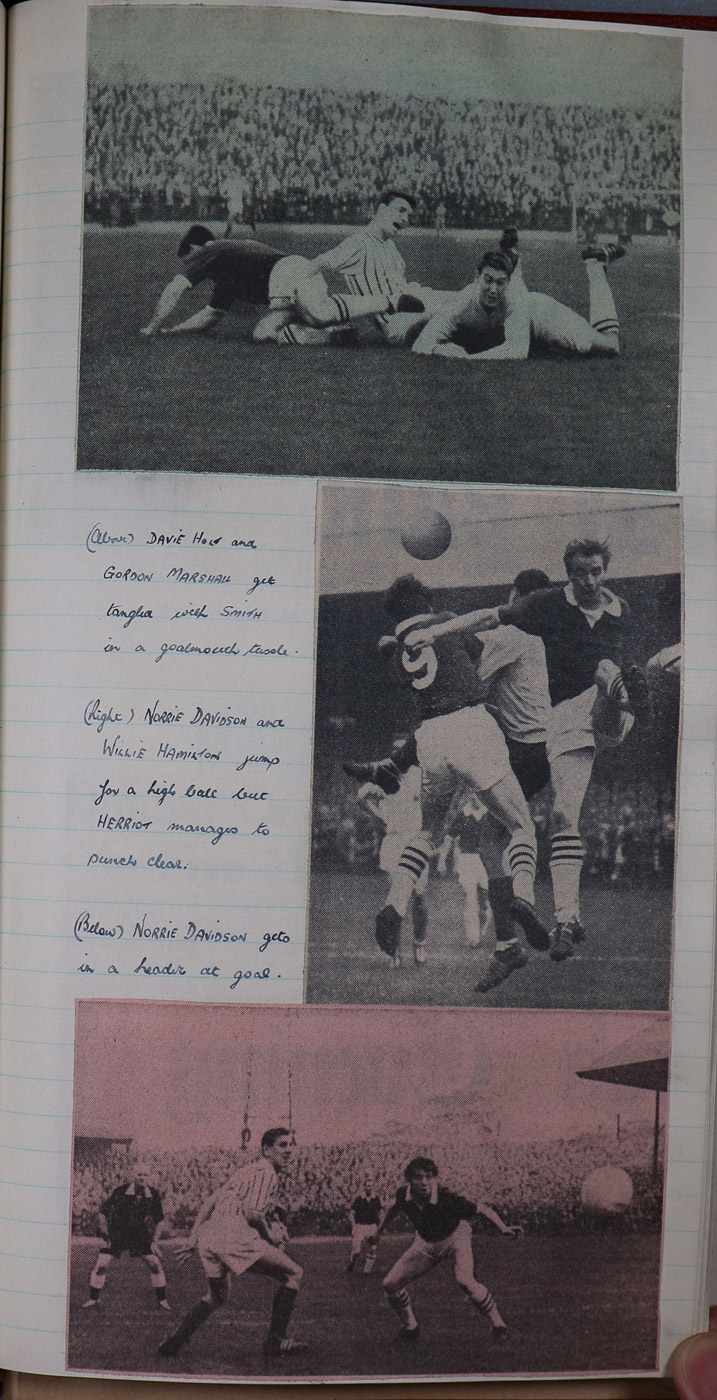 (Above) DAVIE HOLT and
GORDON MARSHALL get
tangled with SMITH
in a goalmouth tussle.
(Right) NORRIE DAVIDSON and
WILLIE HAMILTON jump
for a high ball but
HERRIOT manages to
punch clear.
(Below) NORRIE DAVIDSON gets
in a header at goal.
9